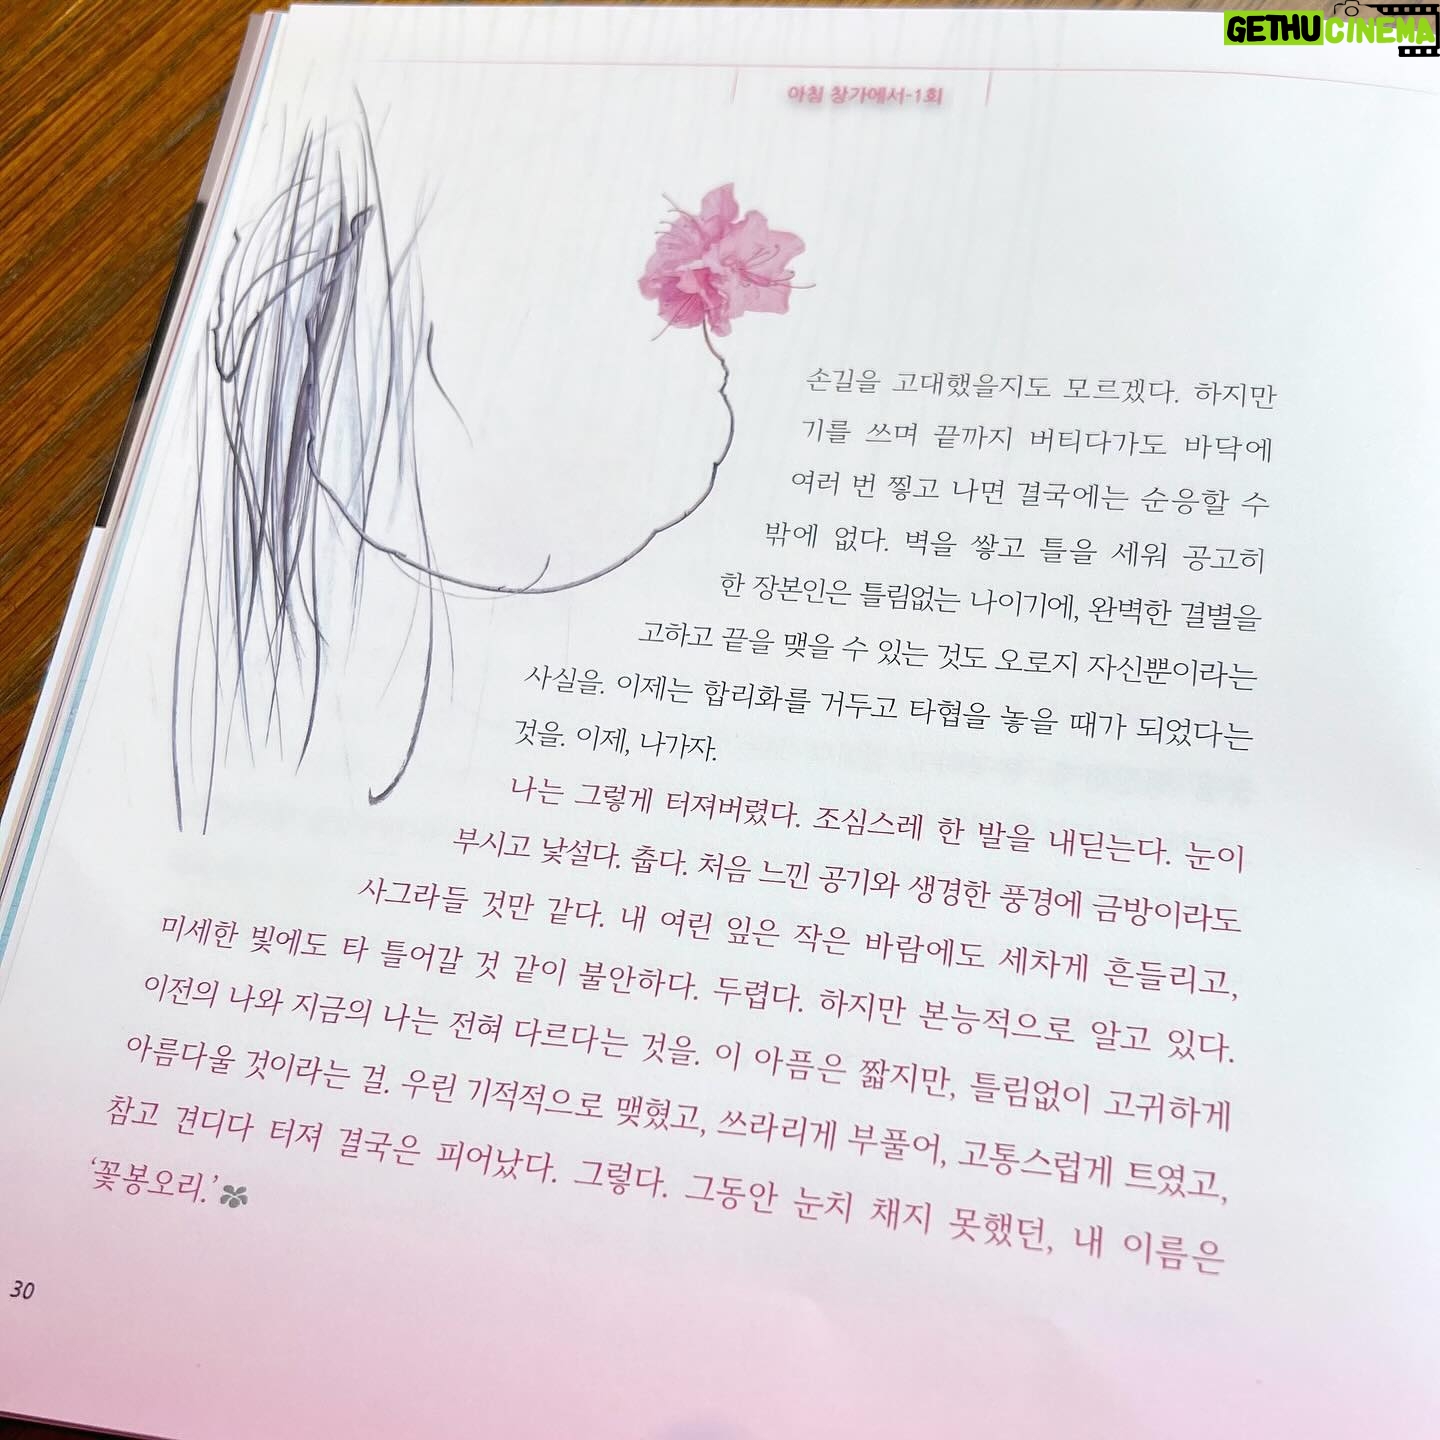 GETHUCINEMA
아침 창가에서-1회
손길을 고대했을지도 모르겠다. 하지만
기를 쓰며 끝까지 버티다가도 바닥에
여러 번 찧고 나면 결국에는 순응할 수
밖에 없다. 벽을 쌓고 틀을 세워 공고히
한 장본인은 틀림없는 나이기에, 완벽한 결별을
고하고 끝을 맺을 수 있는 것도 오로지 자신뿐이라는
사실을. 이제는 합리화를 거두고 타협을 놓을 때가 되었다는
것을. 이제, 나가자.
나는 그렇게 터져버렸다. 조심스레 한 발을 내딛는다. 눈이
부시고 낯설다. 춥다. 처음 느낀 공기와 생경한 풍경에 금방이라도
사그라들 것만 같다. 내 여린 잎은 작은 바람에도 세차게 흔들리고,
미세한 빛에도 타 틀어갈 것 같이 불안하다. 두렵다. 하지만 본능적으로 알고 있다.
이전의 나와 지금의 나는 전혀 다르다는 것을. 이 아픔은 짧지만, 틀림없이 고귀하게
아름다울 것이라는 걸. 우린 기적적으로 맺혔고, 쓰라리게 부풀어, 고통스럽게 트였고,
참고 견디다 터져 결국은 피어났다. 그렇다. 그동안 눈치 채지 못했던, 내 이름은
‘꽃봉오리.’
30